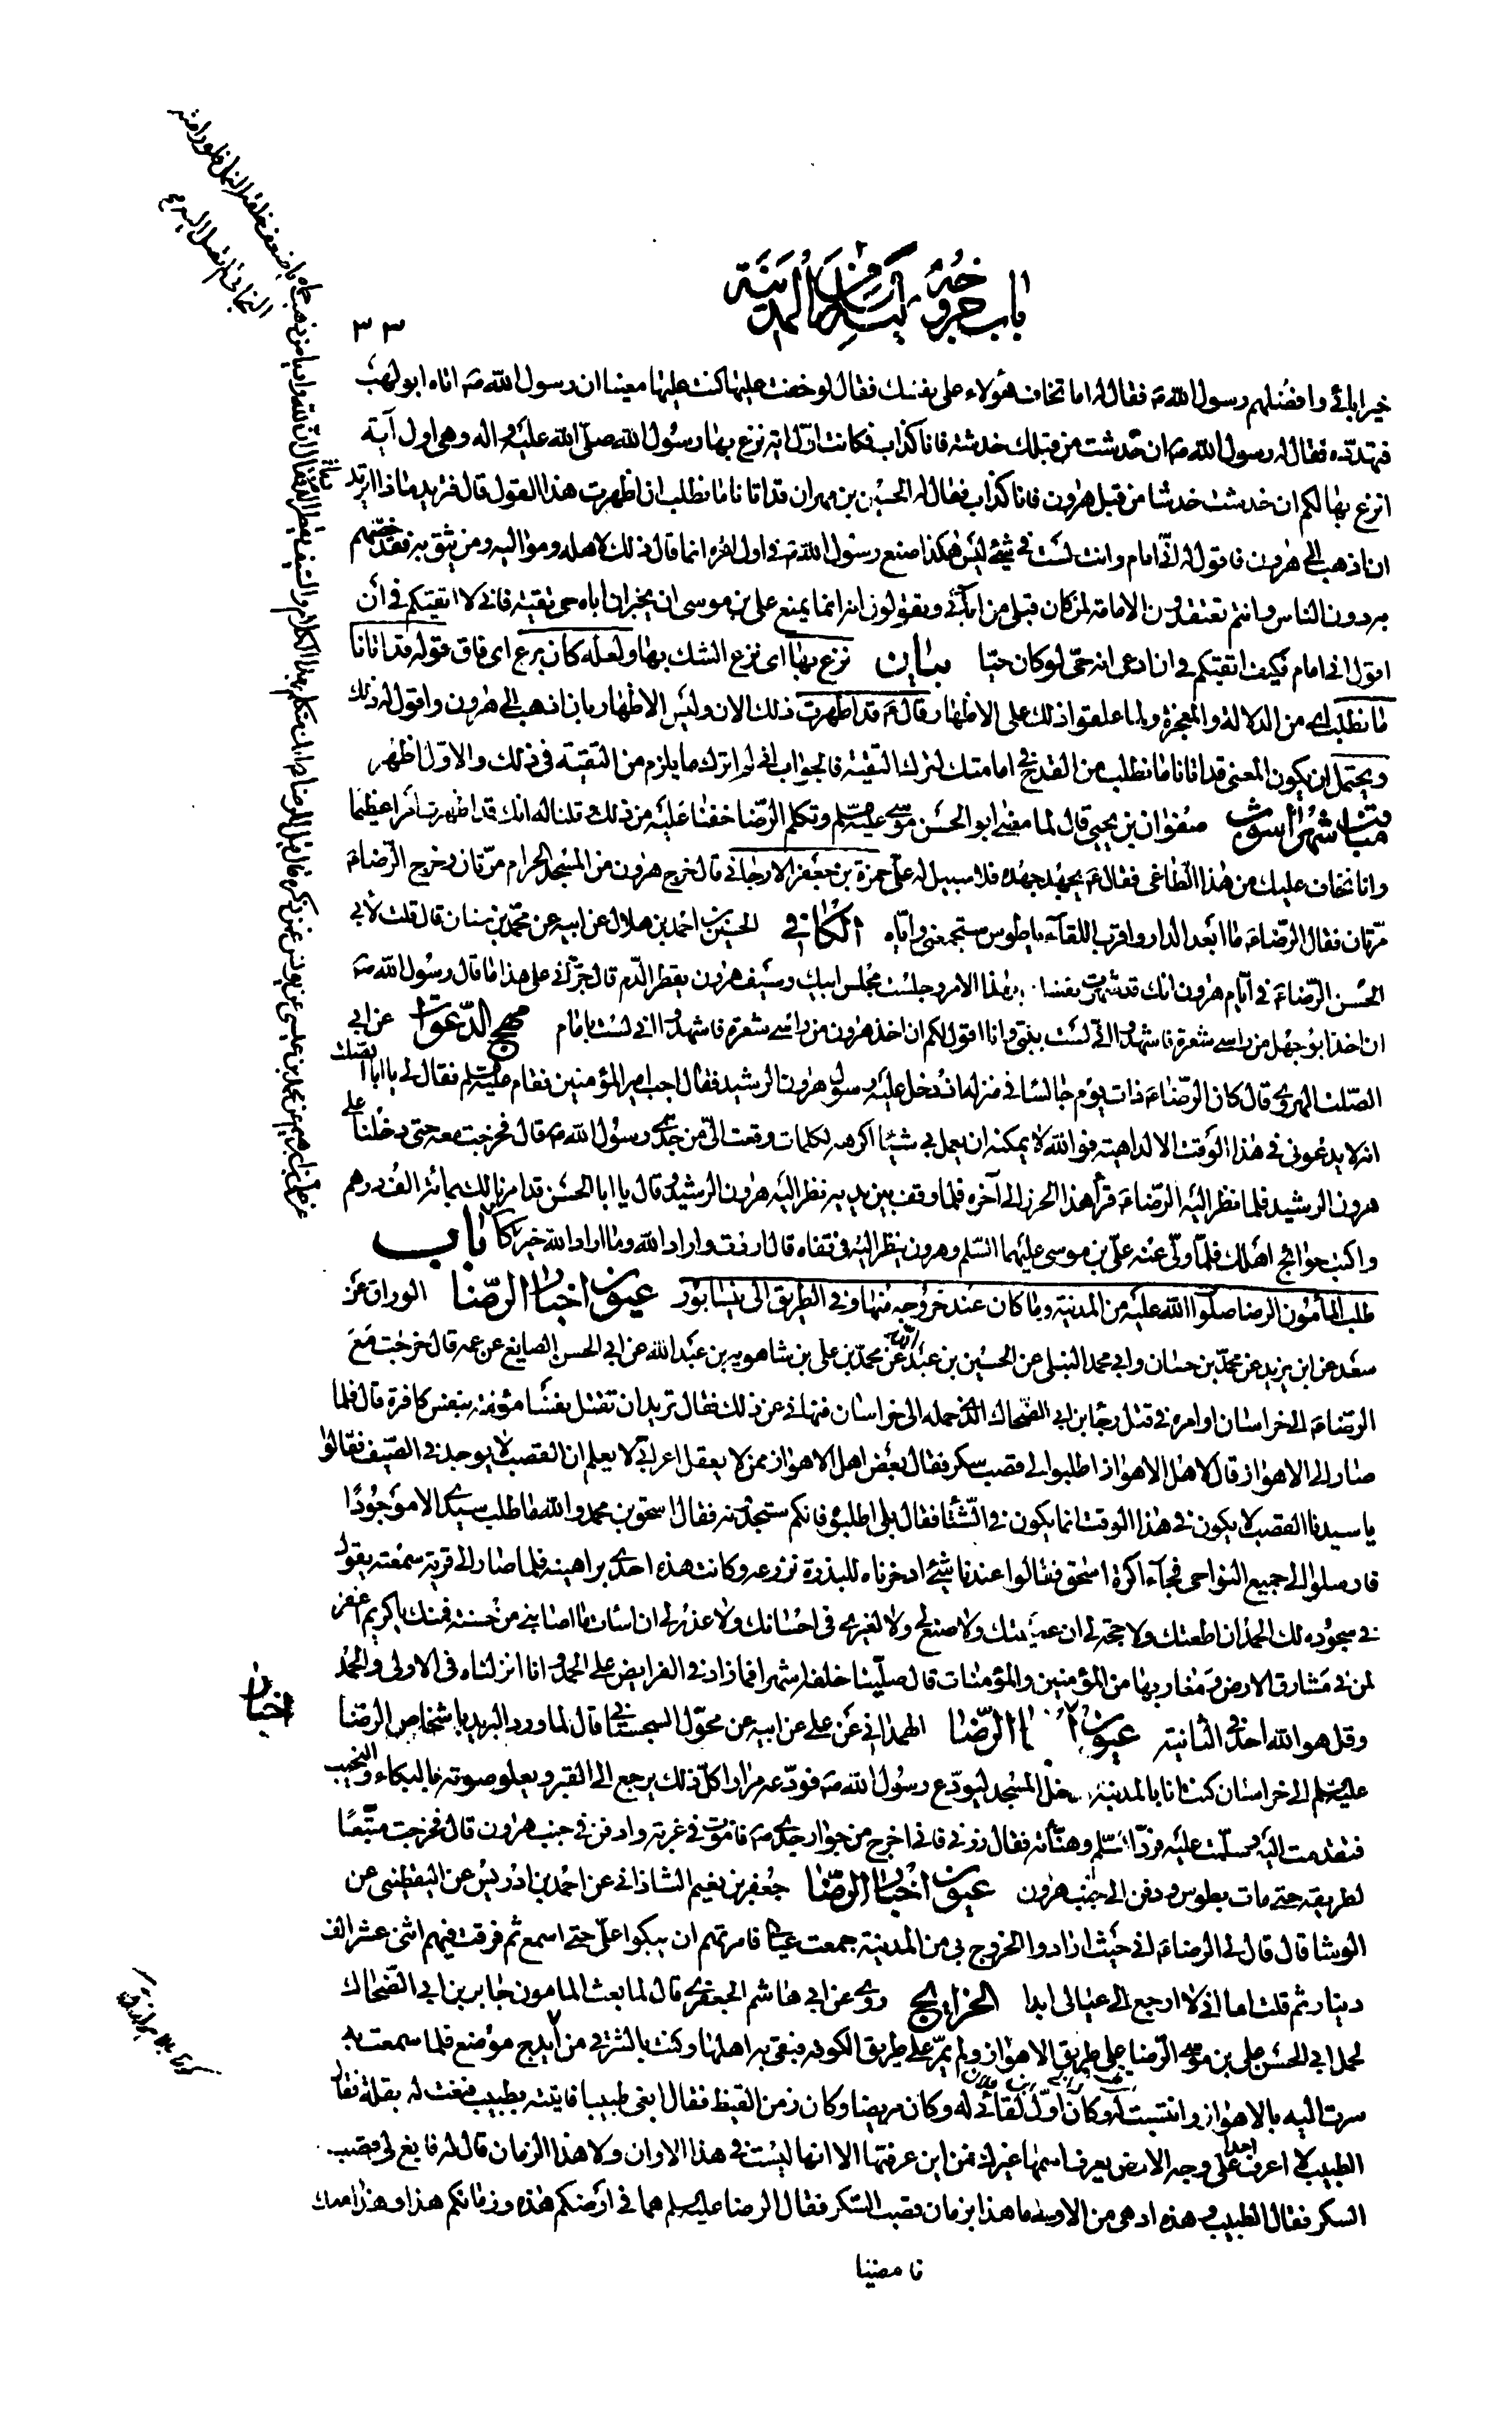 باب خروجه عليه السلام من المدينة
٣٣
خير ابائي وافضلهم رسول الله ص فقال له اما تخاف هؤلاء على نفسك فقال لو خفت عليها كنت عليها معينا ان رسول الله ص اتاه ابو لهب
فتهدده فقال له رسول الله ص ان خدشت من قبلك خدشة فانا كذاب فكانت اول اية نزع بها رسول الله صلى الله عليه واله وهي اول آية
انزع بها لكم ان خدشت خدشا من قبل هرون فانا كذاب فقال له الحسين بن مهران قد اتانا ما نطلب ان اظهرت هذا القول قال فتريد ماذا اتريد
ان اذهب الى هرون فاقول له اني امام وانت لست في شيء ليس هكذا صنع رسول الله ص في اول امره انما قال ذلك لاهله ومواليه ومن يثق به فقد خصهم
به دون الناس وانتم تعتقدون الامامة لمن كان قبلي من ابائي وتقولون انه انما يمنع علي بن موسى ان يخبر ان اباه حي تقية فاني لا اتقيكم في ان
اقول اني امام فكيف اتقيكم في ان ادعي انه حي لو كان حيا بيان نزع بها اى نزع الشك بها ولعله كان برع اى فاق قوله قد اتانا
ما نطلب اى من الدلالة والمعجزة ولما علقوا ذلك على الاظهار قال ع قد اظهرت ذلك الان وليس الاظهار بان اذهب الى هرون واقول له ذلك
ويحتمل ان يكون المعنى قد اتانا ما نطلب من القدح في امامتك لترك التقية فالجواب اني لم اترك ما يلزم من التقية في ذلك والاول اظهر
مناقب شهر اشوب صفوان بن يحيى قال لما مضى ابو الحسن موسى عليه السلم وتكلم الرضا خفنا عليه من ذلك قلنا له انك قد اظهرت امرا عظيما
وانا نخاف عليك من هذا الطاغي فقال ع يجهد جهده فلا سبيل له على حمزة بن جعفر الارجاني قال خرج هرون من المسجد الحرام مرتان وخرج الرضا ع
مرتان فقال الرضا ع ما ابعد الدار واقرب اللقآء يا طوس ستجمعني واياه الكافي الحسين بن احمد بن هلال عن ابيه عن محمد بن سنان قال قلت لابي
الحسن الرضا ع في ايام هرون انك قد شهرت نفسك بهذا الامر وجلست مجلس ابيك وسيف هرون يقطر الدم قال جرأني على هذا ما قال رسول الله ص
ان اخذ ابو جهل من راسى شعرة فاشهدوا اني لست بنبي وانا اقول لكم ان اخذ هرون من راسي شعرة فاشهدوا اني لست بامام مهج الدعوات عن ابي
الصلت الهروي قال كان الرضا ع ذات يوم جالسا في منزله اذ دخل عليه رسول هرون الرشيد فقال اجب امير المؤمنين فقام عليه السلم فقال لي يا ابا الصلت
انه لا يدعوني في هذا الوقت الا لداهية فوالله لا يمكنه ان يعمل بي شيئا اكرهه لكلمات وقعت الي من جدي رسول الله ص قال فخرجت معه حتى دخلنا على
هرون الرشيد فلما نظر اليه الرضا ع قرأ هذا الحرز الى آخره فلما وقف بين يديه نظر اليه هرون الرشيد وقال يا ابا الحسن قد امرنا لك بمائة الف درهم
واكتب حوائج اهلك فلما ولى عنه علي بن موسى عليهما السلم وهرون ينظر اليه في قفاه قال اردت واراد الله وما اراد الله خير باب
طلب المأمون الرضا صلوات الله عليه من المدينة وما كان عند خروجه منها وفي الطريق الى نيسابور عيون اخبار الرضا الوراق عن
سعد عن ابن يزيد عن محمد بن حسان وابي محمد النيلي عن الحسين بن عبد الله عن محمد بن علي بن شاهويه بن عبد الله عن ابي الحسن الصايغ عن عمه قال خرجت مع
الرضا ع الى خراسان اوامره في قتل رجا بن ابي الضحاك الذي حمله الى خراسان فنهاني عن ذلك فقال تريد ان تقتل نفسا مؤمنة بنفس كافرة قال فلما
صار الى الاهواز قال لاهل الاهواز اطلبوا لي قصب سكر فقال بعض اهل الاهواز ممن لا يعقل اعرابي لا يعلم ان القصب لا يوجد في الصيف فقالوا
يا سيدنا القصب لا يكون في هذا الوقت انما يكون في الشتاء فقال بلى اطلبوه فانكم ستجدونه فقال اسحق بن محمد والله ما طلب سيدي الا موجودا
فارسلوا الى جميع النواحي فجآء اكرة اسحق فقالوا عندنا شيء ادخرناه للبذرة نزرعه وكانت هذه احدى براهينه فلما صار الى قرية سمعته يقول
في سجوده لك الحمد ان اطعتك ولا حجة لي ان عصيتك ولا صنع لي ولا لغيري في احسانك ولا عذر لي ان اسات ما اصابني من حسنة فمنك يا كريم اغفر
لمن في مشارق الارض ومغاربها من المؤمنين والمؤمنات قال صلينا خلفه اشهرا فما زاد في الفرايض على الحمد وانا انزلناه في الاولى والحمد
وقل هو الله احد في الثانية عيون اخبار الرضا الهمذاني عن علي عن ابيه عن محول السجستاني قال لما ورد البريد باشخاص الرضا
عليه السلم الى خراسان كنت انا بالمدينة فدخل المسجد ليودع رسول الله ص فودعه مرارا كل ذلك يرجع الى القبر ويعلو صوته بالبكاء والنحيب
فتقدمت اليه وسلمت عليه فرد السلم وهنأته فقال زرني فاني اخرج من جوار جدي ص فاموت في غربة وادفن في جنب هرون قال فخرجت متبعا
لطريقه حتى مات بطوس ودفن الى جنب هرون عيون اخبار الرضا جعفر بن نعيم الشاذاني عن احمد بن ادريس عن اليقطيني عن
الوشا قال قال لي الرضا ع اني حيث ارادوا الخروج بي من المدينة جمعت عيالي فامرتهم ان يبكوا علي حتى اسمع ثم فرقت فيهم اثني عشر الف
دينار ثم قلت اما اني لا ارجع الى عيالي ابدا الخرايج روي عن ابي هاشم الجعفري قال لما بعث المامون جابر بن ابي الضحاك
لحمل ابي الحسن علي بن موسى الرضا على طريق الاهواز ولم يمر على طريق الكوفة فبقي به اهلها وكنت بالشرقي من ايدج موضع فلما سمعت به
سرت اليه بالاهواز وانتسبت له وكان اول لقائي له وكان مريضا وكان زمن القيظ فقال ابغني طبيبا فاتيته بطبيب فنعت له بقلة فقال
الطبيب لا اعرف احدا على وجه الارض يعرف اسمها غيرك فمن اين عرفتها الا انها ليست في هذا الاوان ولا هذا الزمان قال له فابغ لي قصب
السكر فقال الطبيب وهذه ادهى من الاولى ما هذا بزمان قصب السكر فقال الرضا عليه السلم هما في ارضكم هذه وزمانكم هذا وهذا معك
فامضيا
اخبار